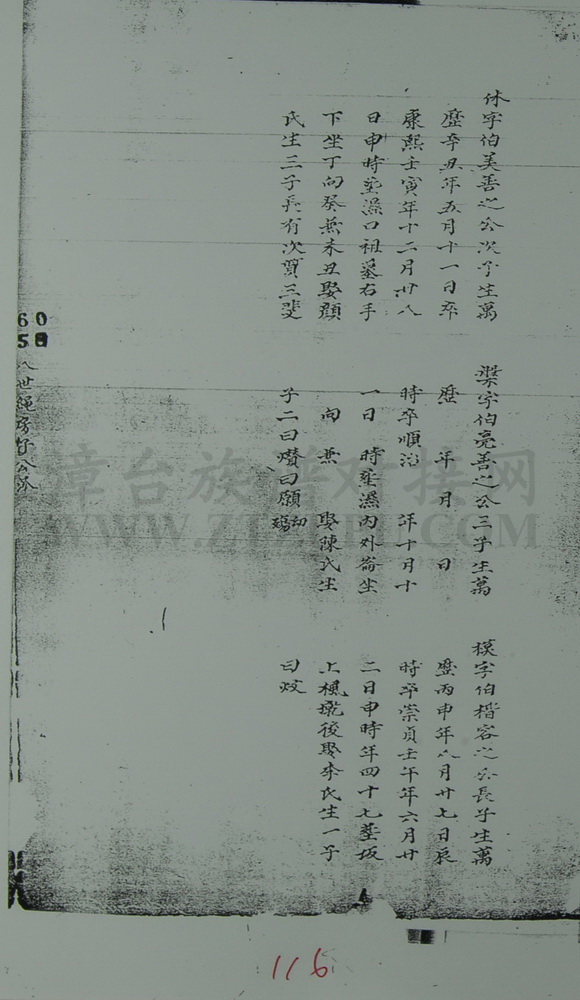 休字伯美善之公次子生萬
歷辛丑年五月十一日卒
康熙壬寅年十二月廿八
日申時塟濕口祖墓右手
下坐丁向癸兼未丑娶顏
氏生三子長有次質三斐
字伯亮善之公三子生萬
歷 年 月 日
時卒順治 年十月十
一日 時塟濕內外崙坐
向 兼 娶陳氏生
子二曰熿曰願
模字伯楷容之公長子生萬
歷丙申年八月廿七日辰
時卒崇貞壬午年六月廿
二日申時年四十七塟坂
上楓後娶李氏生一子
曰炆
60
58
八世
漳台族谱对接网
116